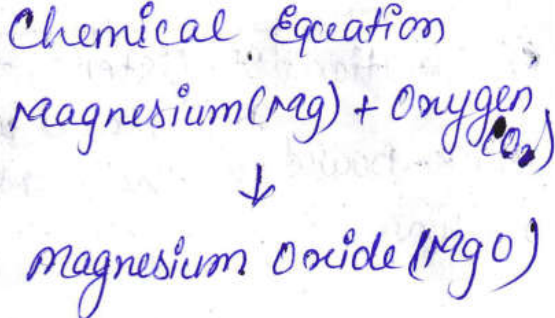 Chemical Equation
Magnesium(Mg) + Oxygen
(O₂)
↓
Magnesium Oxide (MgO)